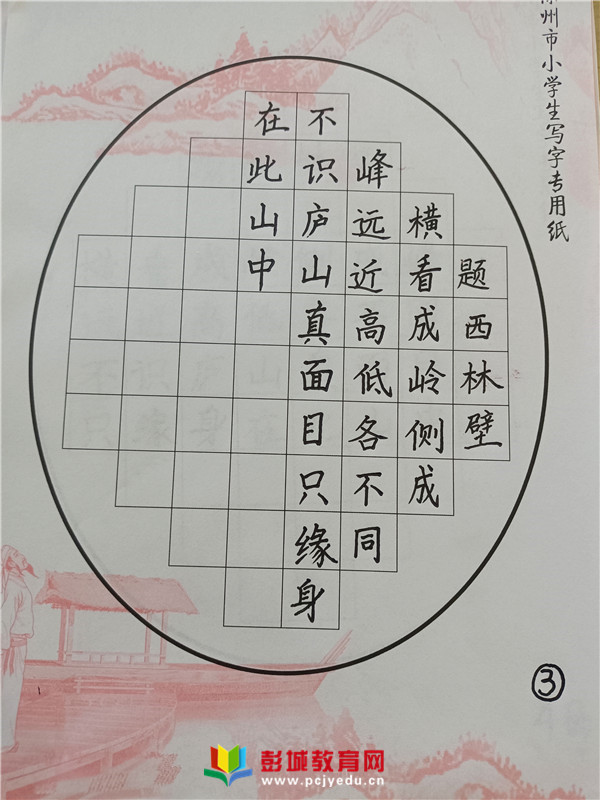 徐州市小学生写字专用纸
题西林壁
横看成岭侧成
峰远近高低各不同
不识庐山真面目只缘身
在此山中
③
彭城教育网
www.pcjyedu.cn